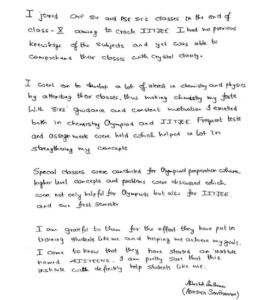 I joined OVP Sir and ASR Sir's classes in the end of
class - X aiming to crack IITJEE. I had no previous
knowledge of the subjects and yet was able to
comprehend their classes with crystal clarity.
I went on to develop a lot of interest in chemistry and physics
by attending their classes, thus making chemistry my forte
With Sirs' guidance and constant motivation I excelled
both in chemistry Olympiad and IITJEE. Frequent tests
and assignments were held which helped a lot in
strengthening my concepts
Special classes were conducted for Olympiad preparation where
higher level concepts and problems were discussed which
were not only helpful for Olympiads but also for IITJEE.
and our first semester
I am grateful to them for the effort they have put in
training students like me and helping me achieve my goals.
I came to know that they have started an institute
named I am pretty sure that this
institute will definitely help students like me.